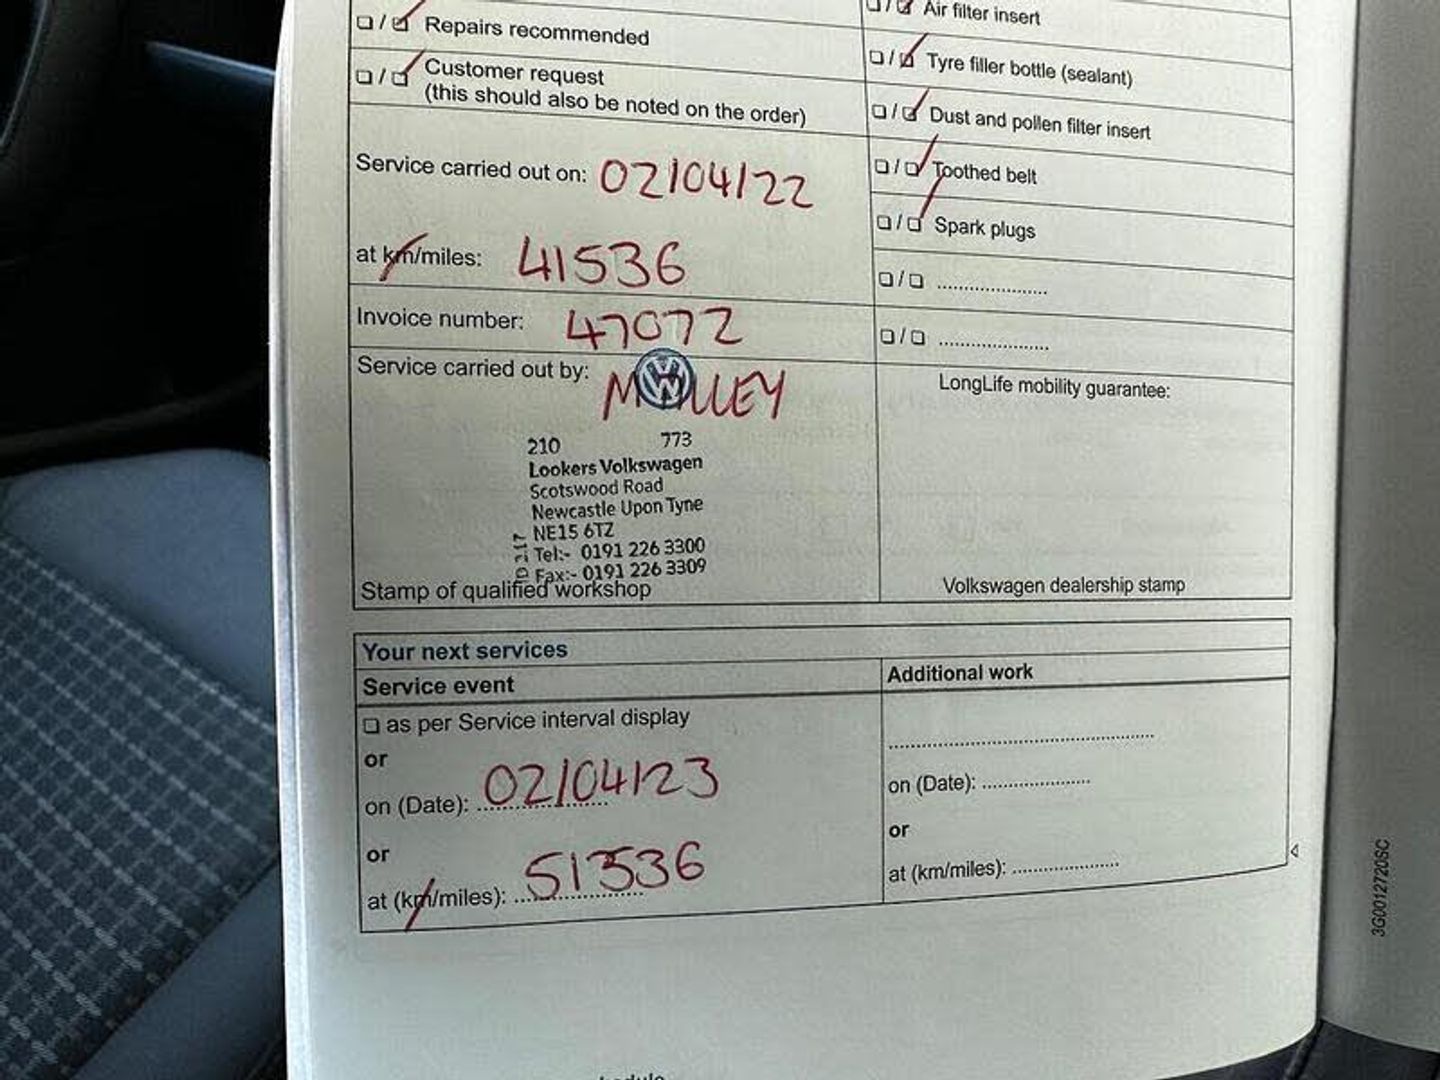 ❏ / ❏ Repairs recommended
❏ / ❏ Customer request
(this should also be noted on the order)
Service carried out on: 02/04/22
at km/miles: 41536
Invoice number: 47072
Service carried out by:
210 773
Lookers Volkswagen
Scotswood Road
Newcastle Upon Tyne
NE15 6TZ
Tel:- 0191 226 3300
Fax:- 0191 226 3309
Stamp of qualified workshop
❏ / ❏ Air filter insert
❏ / ❏ Tyre filler bottle (sealant)
❏ / ❏ Dust and pollen filter insert
❏ / ❏ Toothed belt
❏ / ❏ Spark plugs
❏ / ❏ .....................
❏ / ❏ .....................
LongLife mobility guarantee:
Volkswagen dealership stamp
Your next services
Service event
❏ as per Service interval display
or
on (Date): 02/04/23
or
at (km/miles): 51536
Additional work
..................................................
on (Date): ....................
or
at (km/miles): ....................
3G0012720SC